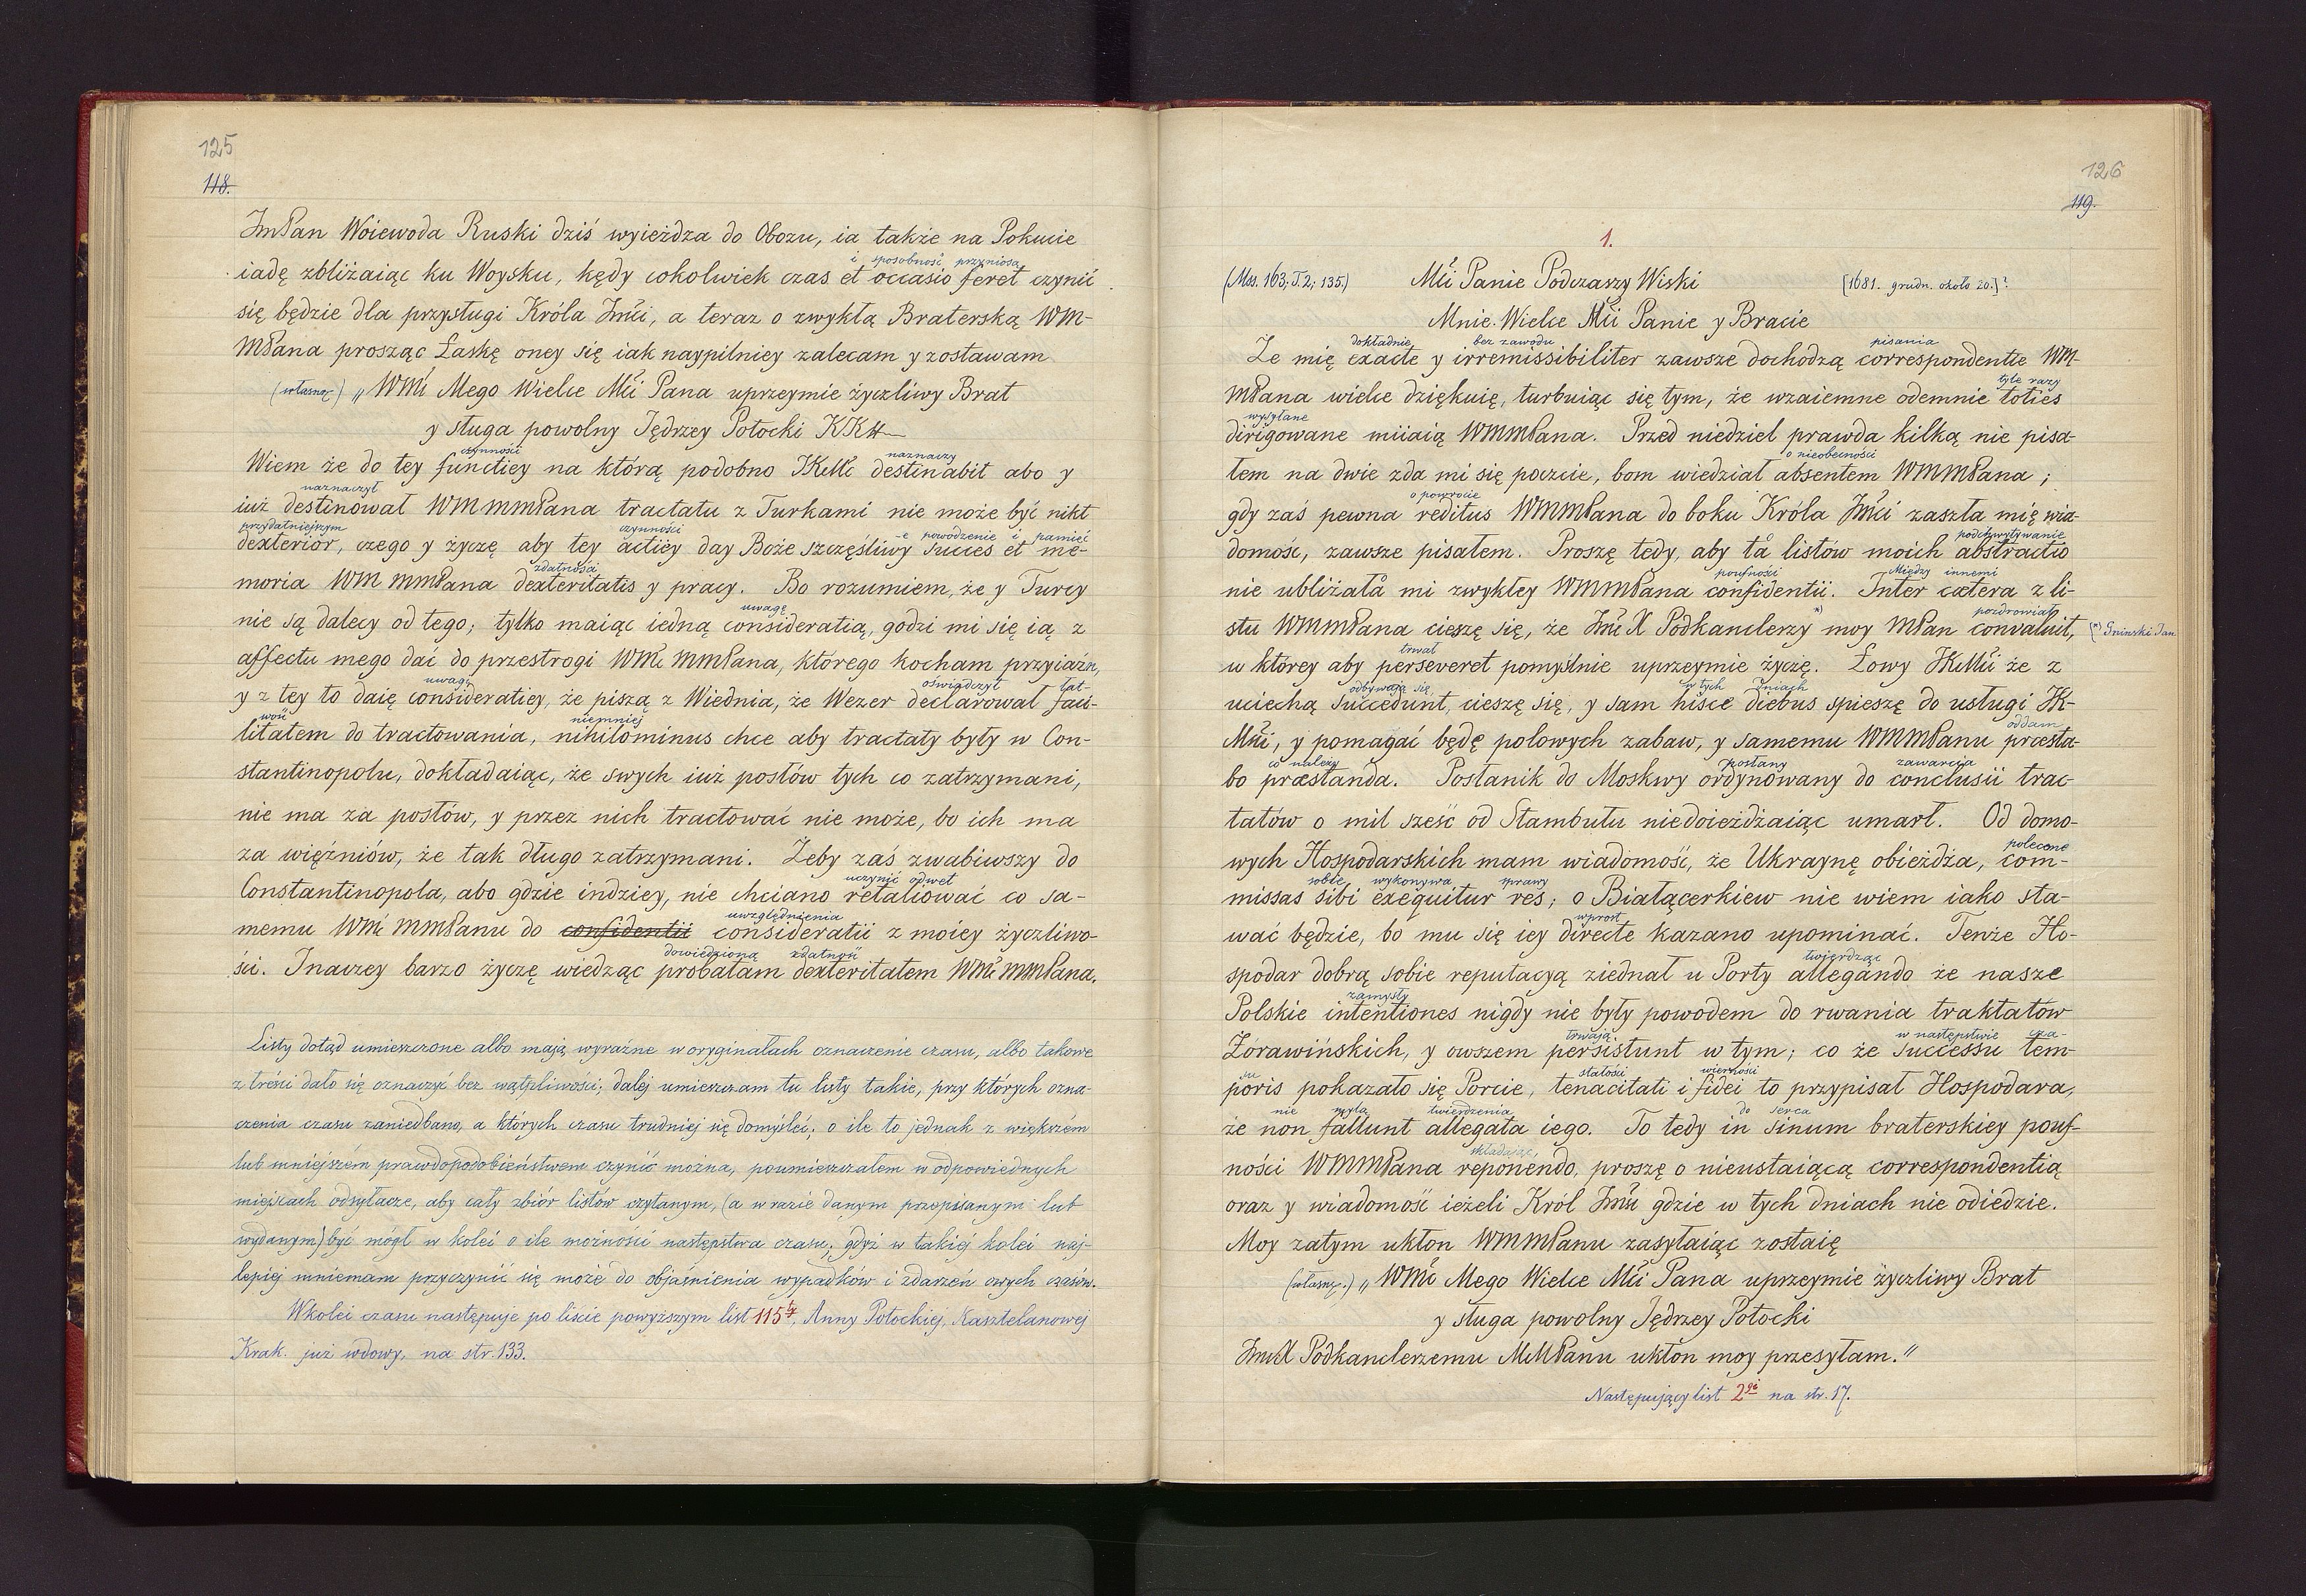 125
118.
JmPan Woiewoda Ruski dziś wyieżdza do Obozu, ia także na Pokucie
i sposobność przyniosą
iadę zbliżaiąc ku Woysku, kędy cokolwiek czas et occasio feret czynić
się będzie dla przysługi Króla Jmći, a teraz o zwykłą Braterską WM-
MPana prosząc Łaskę oney się iak naypilniey zalecam y zostawam
(własnoę) „ WMći Mego Wielce Mći Pana uprzeymie życzliwy Brat
y sługa powolny Jędrzey Potocki KKH
czynności naznaczy
Wiem że do tey functiey na którą podobno JKMć destinabit abo y
naznaczył
iuż destinował WM MMPana tractatu z Turkami nie może być nikt
przydatniejszym czynności -e powodzenie i pamięć
dexterior, czego y życzę, aby tey actiey day Boże szczęśliwy succes et me-
zdatności
moria WM MMPana dexteritatis y pracy. Bo rozumiem, że y Turcy
uwagę
nie są dalecy od tego; tylko maiąc iedną consideratią, godzi mi się ią z
affectu mego dać do przestrogi WMći MMPana, którego kocham przyiaźn,
uwagi oświadczył łat-
y z tey to daię consideratiey, że piszą z Wiednia, że Wezer declarował faci-
wość niemniej
litatem do tractowania, nihilominus chce aby tractaty były w Con-
stantinopolu, dokładaiąc, że swych iuż posłów tych co zatrzymani,
nie ma za posłów, y przez nich tractować nie może, bo ich ma
za więźniów, że tak długo zatrzymani. Żeby zaś zwabiwszy do
uczynić odwet
Constantinopola, abo gdzie indziey, nie chciano retaliować co sa-
uwzględnienia
memu WMći MMPanu do confidentii consideratii z moiey życzliwo-
dowiedzioną zdatność
ści. Inaczey barzo życzę wiedząc probatam dexteritatem WMći MMPana.
Listy dotąd umieszczone albo mają wyraźne w oryginałach oznaczenie czasu, albo takowe
z treści dało się oznaczyć bez wątpliwości; dalej umieszczam tu listy takie, przy których ozna-
czenia czasu zaniedbano, a których czasu trudniej się domyśleć; o ile to jednak z większém
lub mniejszém prawdopodobieństwem czynić można, poumieszczałem w odpowiednych
miejscach odsyłacze, aby cały zbiór listów czytanym, (a w razie danym przepisanym lub
wydanym) być mógł w kolei o ile możności następstwa czasu; gdyż w takiej kolei naj-
lepiej mniemam przyczynić się może do objaśnienia wypadków i zdarzeń owych czasów.
W kolei czasu następuje po liście powyższym list 115ty, Anny Potockiej, Kasztelanowej
Krak. już wdowy, na str. 133.
126
119.
1.
(Mss. 163; T. 2; 135.) Mći Panie Podczaszy Wiski [1681. grudn. około 20.]?
Mnie Wielce Mći Panie y Bracie
dokładnie bez zawodu pisania
Że mię exacte y irremissibiliter zawsze dochodzą correspondentie WM-
tyle razy
MPana wielce dziękuię, turbuiąc się tym, że wzaiemne odemnie toties
wysyłane
dirigowane miiaią WMMPana. Przed niedziel prawda kilką nie pisa-
o nieobecności
łem na dwie zda mi się poczcie, bom wiedział absentem WMMPana;
o powrocie
gdy zaś pewna reditus WMMPana do boku Króla Jmći zaszła mię wia-
podchwytywanie
domość, zawsze pisałem. Proszę tedy, aby tå listów moich abstractio
poufności Między innemi
nie ubliżałå mi zwykłey WMMPana confidentii. Inter cætera z li-
pozdrowiał
stu WMMPana cieszę się, że Jmć X Podkanclerzy *) moy MPan convaluit, (*) Gniński Jan
trwał
w którey aby perseveret pomyślnie uprzeymie życzę. Łowy JKMći że z
odbywają się w tych dniach
uciechą succedunt, cieszę się, y sam hisce diebus spieszę do usługi JK-
oddam
Mći, y pomagać będę polowych zabaw, y samemu WMMPanu præsta-
co należy posłany zawarcia
bo præstanda. Posłanik do Moskwy ordynowany do conclusii trac-
tatów o mil sześć od Stambułu niedoieżdżaiąc umarł. Od domo-
polecone
wych Hospodarskich mam wiadomość, że Ukraynę obieżdża, com-
sobie wykonywa sprawy
missas sibi exequitur res; o Białącerkiew nie wiem iako sta-
wprost
wać będzie, bo mu się iey directe kazano upominać. Tenże Ho-
twierdząc
spodar dobrą sobie reputacyą ziednał u Porty allegando że nasze
zamysły
Polskie intentiones nigdy nie były powodem do rwania traktatów
trwają w następstwie cza-
Żórawińskich, y owszem persistunt w tym; co że successu tem-
su stałości wierności
poris pokazało się Porcie, tenacitati i fidei to przypisał Hospodara,
nie mylą twierdzenia do serca
że non fallunt allegata iego. To tedy in sinum braterskiey pouf-
składając,
ności WMMPana reponendo, proszę o nieustaiącą correspondentią
oraz y wiadomość ieżeli Król Jmći gdzie w tych dniach nie odiedzie.
Moy zatym ukłon WMMPanu zasyłaiąc zostaię
(własnoę.) „ WMći Mego Wielce Mći Pana uprzeymie życzliwy Brat
y sługa powolny Jędrzey Potocki
JmX Podkanclerzemu MMPanu ukłon moy przesyłam."
Następujący list 2gi na str. 17.